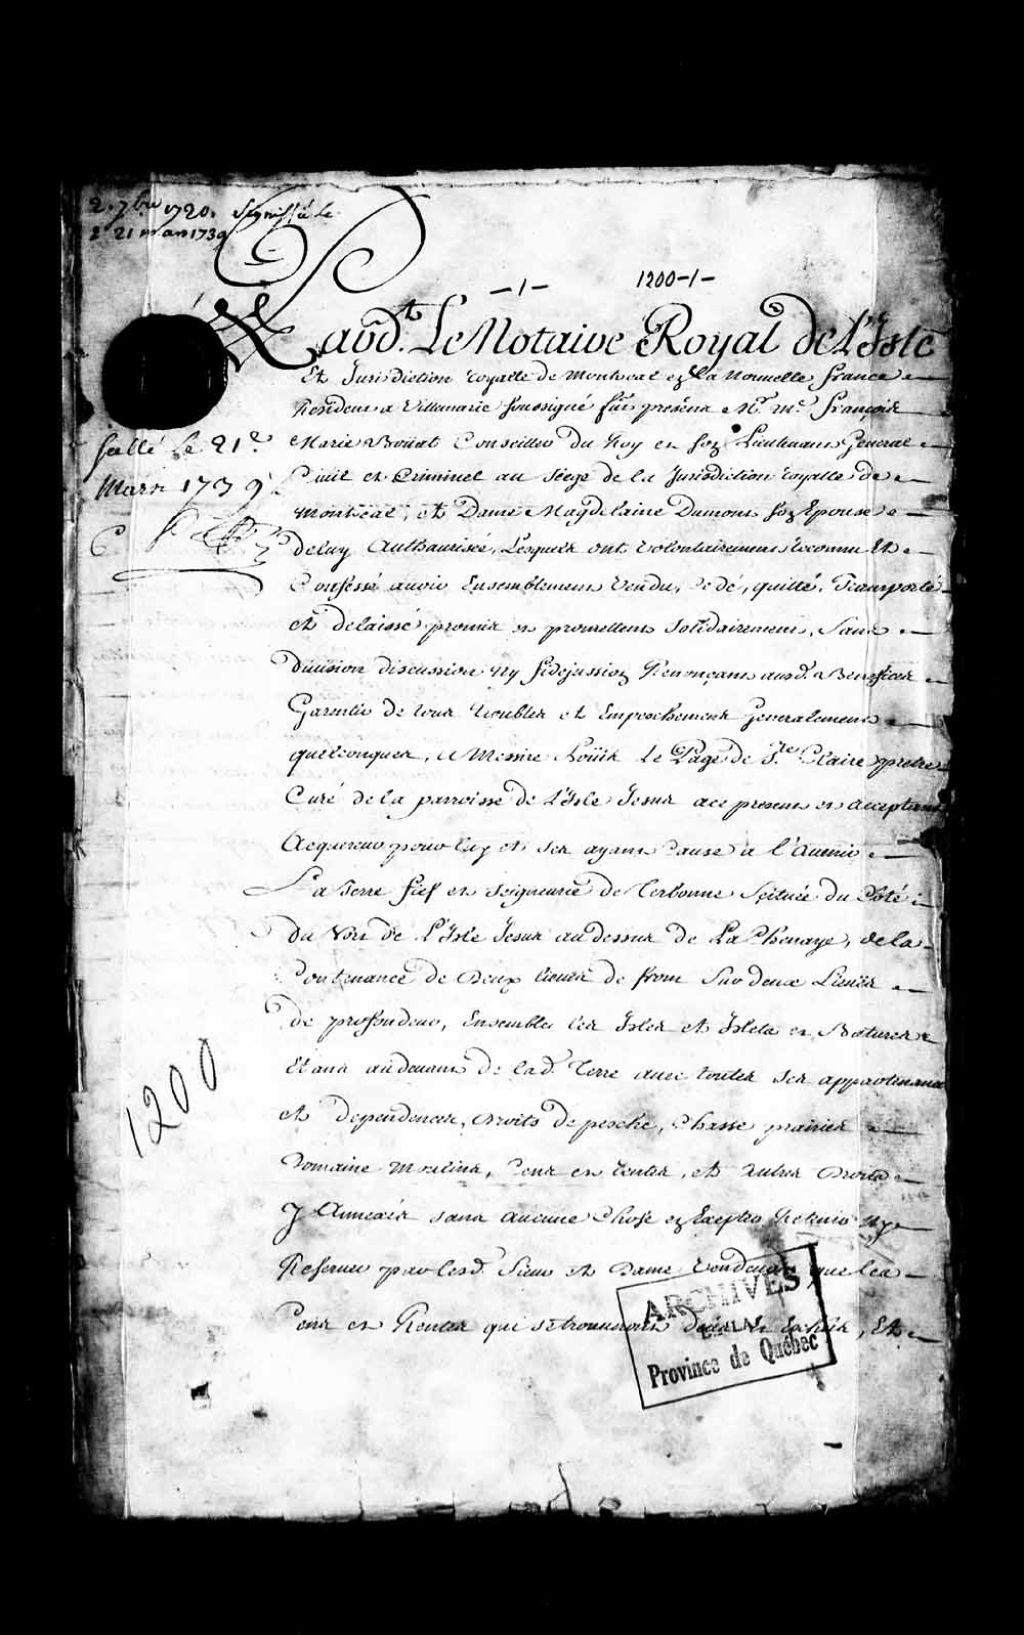 2. 7bre 1720. Signiffié le
21 mars 1739
-1-
1200-1-
Pavd.t Le Notaire Royal de L'Isle
Et Jurisdiction royalle de Montreal en La Nouvelle france
Resident a Villemarie soussigné fut present Mr. Me. francois
Marie Boüat Conseiller du Roy et son Lieutenant General
Civil et Criminel au siege de la Jurisdiction royalle de
Montreal, et Dame Magdelaine Dumont son Epouse
de luy Authaurisée, Lesquels ont volontairement reconnu Et
Confessé avoir Ensemblement Vendu, Cedé, quitté, Transporté
et delaissé promis et promettent solidairement, sans
Division discussion ny fidejussion Renonçant ausd. Benefices
Garantir de tous troubles et Empeschement Generalement
quelconques, a Messire Loüis Le Page de Ste. Claire pretre
Curé de la parroisse de L'Isle Jesus a ce present et acceptant
Acquereur pour luy et ses ayant Cause a l'avenir
La Terre fief et seigneurie de Terbonne scituée du Costé
du Nort de L'Isle Jesus au dessus de La Chenaye, de la
Contenance de Deux lieües de front sur deux Lieües
de profondeur, Ensemble les Isles et Islets et Batures
Etant au devant de lad. Terre avec toutes ses appartenances
et dependences, droits de pesche, Chasse prairies
Domaine moulins, Cens et rentes, et autres Droits
Y Annexés sans aucune Chose en Excepter Retenir ny
Reserver par lesd. Sieur et Dame Vendeurs que les
Cens et Rentes qui se trouveront Deus et Echus, Et
sellé le 21e
Mars 1739
1200
ARCHIVES
DE LA
Province de Québec